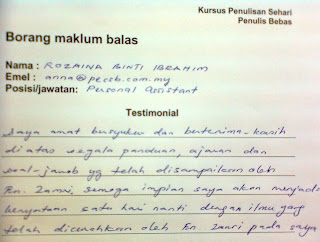 Kursus Penulisan Sehari
Penulis Bebas
Borang maklum balas
Nama : ROZAINA BINTI IBRAHIM
Emel : anna@pecsb.com.my
Posisi/jawatan: Personal Assistant
Testimonial
Saya amat bersyukur dan berterima-kasih
di atas segala panduan, ajaran dan
soal-jawab yg telah disampaikan oleh
En. Zamri, semoga impian saya akan menjadi
kenyataan satu hari nanti dengan ilmu yang
telah dicurahkan oleh En. Zamri pada saya